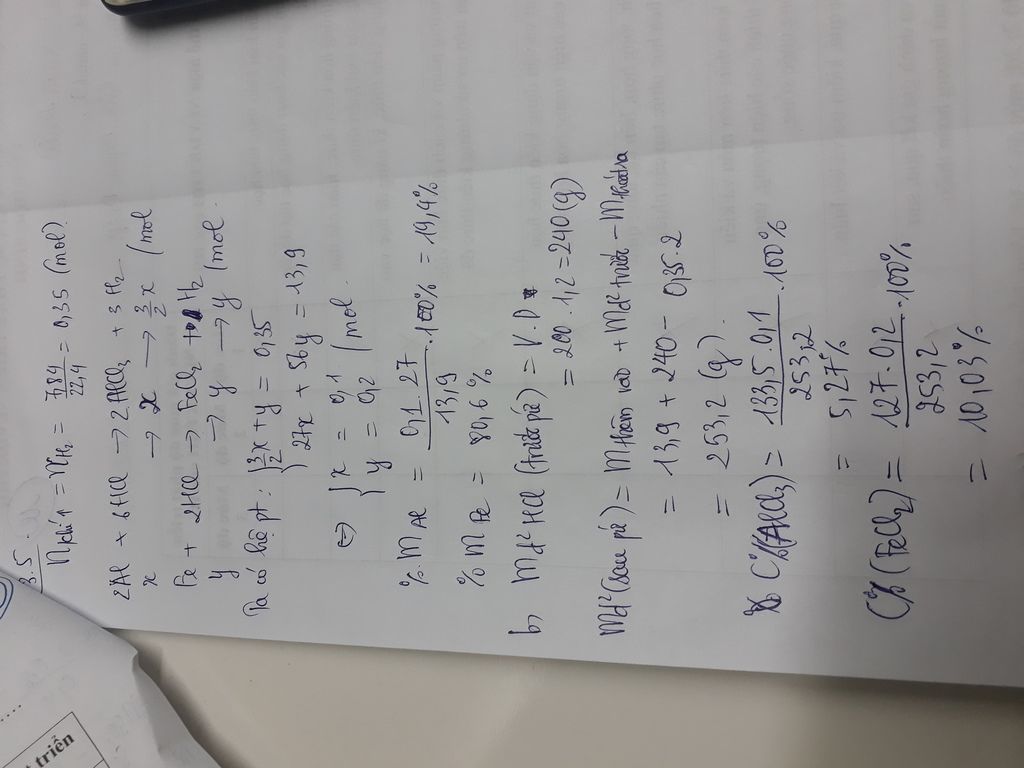 3.5.
n khí 1 = nH₂ = 7,84/22,4 = 0,35 (mol).
2Al + 6HCl → 2AlCl₃ + 3H₂
x → x → 3/2 x (mol
Fe + 2HCl → FeCl₂ + H₂
y → y → y (mol.
Ta có hệ pt: { 3/2 x + y = 0,35
27x + 56y = 13,9
⇔ { x = 0,1
y = 0,2 (mol.
% mAl = 0,1.27/13,9 .100% = 19,4%
% mFe = 80,6%
b, md² HCl (trước pứ) = V.D
= 200.1,2 = 240(g)
md² (sau pứ) = m thêm vào + md² trước - m thoát ra
= 13,9 + 240 - 0,35.2
= 253,2 (g).
C%(AlCl₃) = 133,5.0,1/253,2 .100%
= 5,27%
C% (FeCl₂) = 127.0,2/253,2 .100%
= 10,03%
t triển